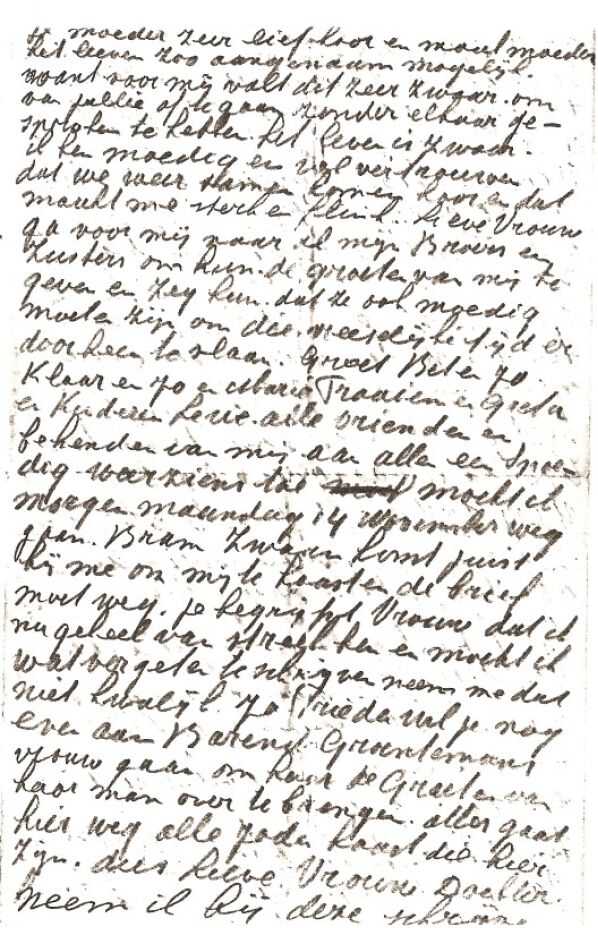 je moeder zeer lief hoor en maak moeder
het leven zoo aangenaam mogelijk.
want voor mij valt dit zeer zwaar om
van jullie af te gaan zonder elkaar ge-
sproken te hebben het leven is zwaar.
ik ben moedig en vol vertrouwen
dat we weer samen komen hoor en dat
maakt me sterk en flink. Lieve Vrouw
ga voor mij naar al mijn Broers en
Zusters om hun de groeten van mij te
geven en zeg hun dat ze ook moedig
moeten zijn om die vreeslijke tijd er
doorheen te slaan. Groet Bet en Jo
Klaar en Jo en Marie en Greta
en Kinderen alle vrienden en
bekenden van mij aan allen een spoe-
dig weerziens toe mocht ik
morgen maandag 14 November weg
gaan. Bram Zwaan komt juist
bij me om mij te haasten de brief
moet weg. je begrijpt Vrouw dat ik
nu geheel van streek ben en mocht ik
wat vergeten te schrijven neem me dat
niet kwalijk. Ja Frieda wil je nog
even aan Barend Groentemans
vrouw gaan om haar de Groeten van
haar man over te brengen. alles gaat
hier weg alle joden haast die hier
zijn. dus Lieve Vrouw Dochter.
neem ik bij deze